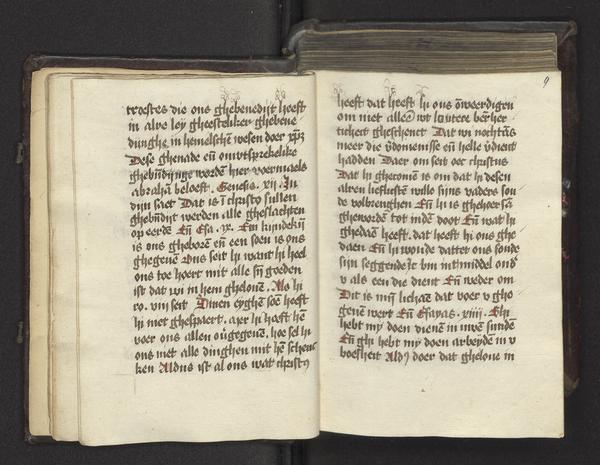 troestes die ons ghebenedijt heeft
in alre ley gheesteliker ghebene
dijnghe in hemelschē wesen doer xpm̄
Dese ghenade eñ onwtsprekelike
ghebn̄dijnge wordē hier voermaels
abrahā beloeft. Genesis. xij. In
dijn saet Dat is ī christo sullen
ghebn̄dijt werden alle gheslachten
op eerde Eñ Esa. ix. Ein kijndekijn
is ons gheborē eñ een soen is ons
ghegeuē Ons seit hi want hi heel
ons toe hoert mit alle sijn goeden
ist dat wi in hem ghelouē. Als hi
ro. viij seit Sinen eyghē soē heeft
hi niet ghespaert. mer hi haeft hē
voer ons allen ouergeuē. hoe sel hi
ons niet alle dinghen mit hē schenc
ken Aldus ist al ons wat christꝰ
9
heeft dat heeft hi ons onweerdigen
om niet alleē wt louter berher
ticheit gheschenct Dat wi nochtās
meer die v̄doemenisse eñ helle v̄dient
hadden Daer om seit oec christus
Dat hi ghecomē is om dat hi desen
alren liefliesten wille sijns vaders sou
de volbrenghen Eñ hi is ghehoersā
gheworden tot indē doot Eñ wat hi
ghedaē heeft. dat heeft hi ons ghe
daen Eñ hi woude dattet ons soude
sijn seggende Ic bin int middel ond̄
v als een die dient Eñ weder om
Dit is mijn lichaē dat voer v ghe
geuē wert Eñ Esayas. xliij. Ghi
hebt my doen dienē in uwen sunde
Eñ ghi hebt my doen arbeydē in v
boesheit Aldꝰ doer dat gheloue in